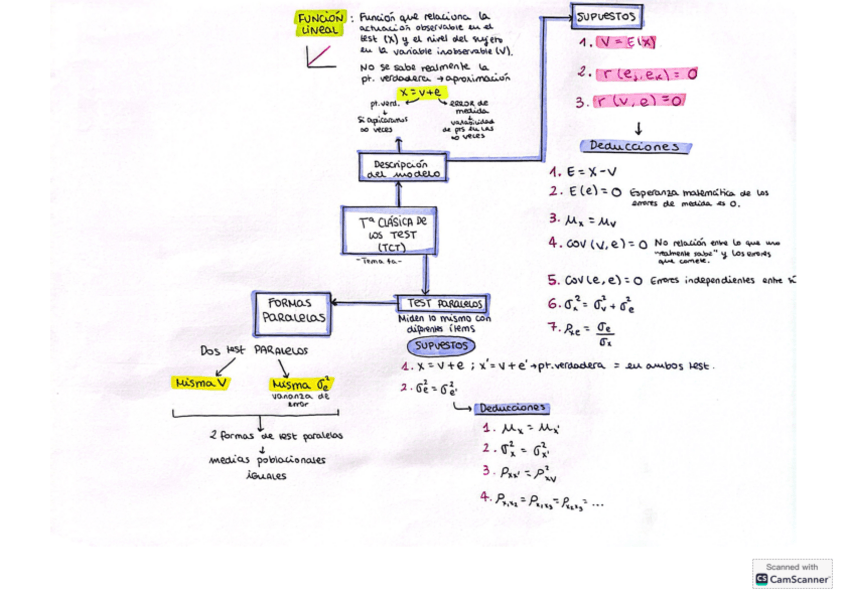 FUNCIÓN LINEAL : Función que relaciona la
actuación observable en el
test (X) y el nivel del sujeto
en la variable inobservable (V).
No se sabe realmente la
pt. verdadera → aproximación
X = V + e
pt. verd.
↓
Si aplicáramos
∞ veces
error de
medida
↓
variabilidad
de pts en las
∞ veces
Descripción
del modelo
Tª CLÁSICA DE
LOS TEST
(TCT)
- Tema 6a -
SUPUESTOS
1. V = E(X)
2. r(ej, ek) = 0
3. r(v, e) = 0
↓
Deducciones
1. E = X - V
2. E(e) = 0 Esperanza matemática de los
errores de medida es 0.
3. μx = μv
4. COV(V, e) = 0 No relación entre lo que uno
"realmente sabe" y los errores
que comete.
5. COV(e, e) = 0 Errores independientes entre sí
6. σ²x = σ²v + σ²e
7. ρxe = σe / σx
TEST PARALELOS
Miden lo mismo con
diferentes ítems
SUPUESTOS
1. X = V + e ; X' = V + e' → pt. verdadera = en ambos test.
2. σ²e = σ²e'
Deducciones
1. μx = μx'
2. σ²x = σ²x'
3. ρxx' = ρ²xv
4. ρx1x2 = ρx1x3 = ρx2x3 = ...
FORMAS
PARALELAS
Dos test PARALELOS
Misma V
Misma σ²e
varianza de
error
2 formas de test paralelas
↓
medias poblacionales
iguales
Scanned with
CS CamScanner